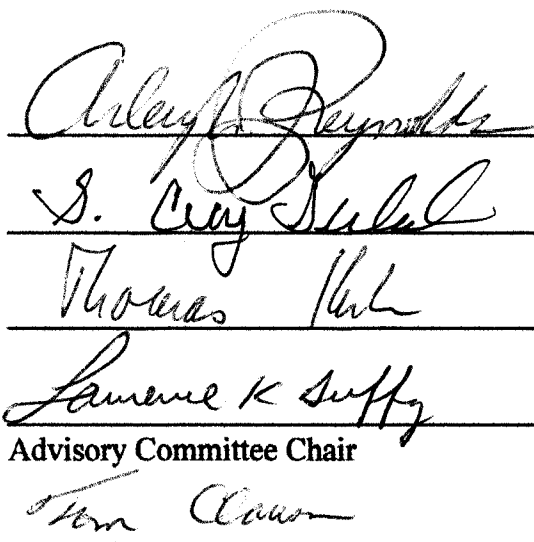 Arleigh Reynolds
S. Craig Gerlach
Thomas
Lawrence K Duffy
Advisory Committee Chair
Tom Clausen